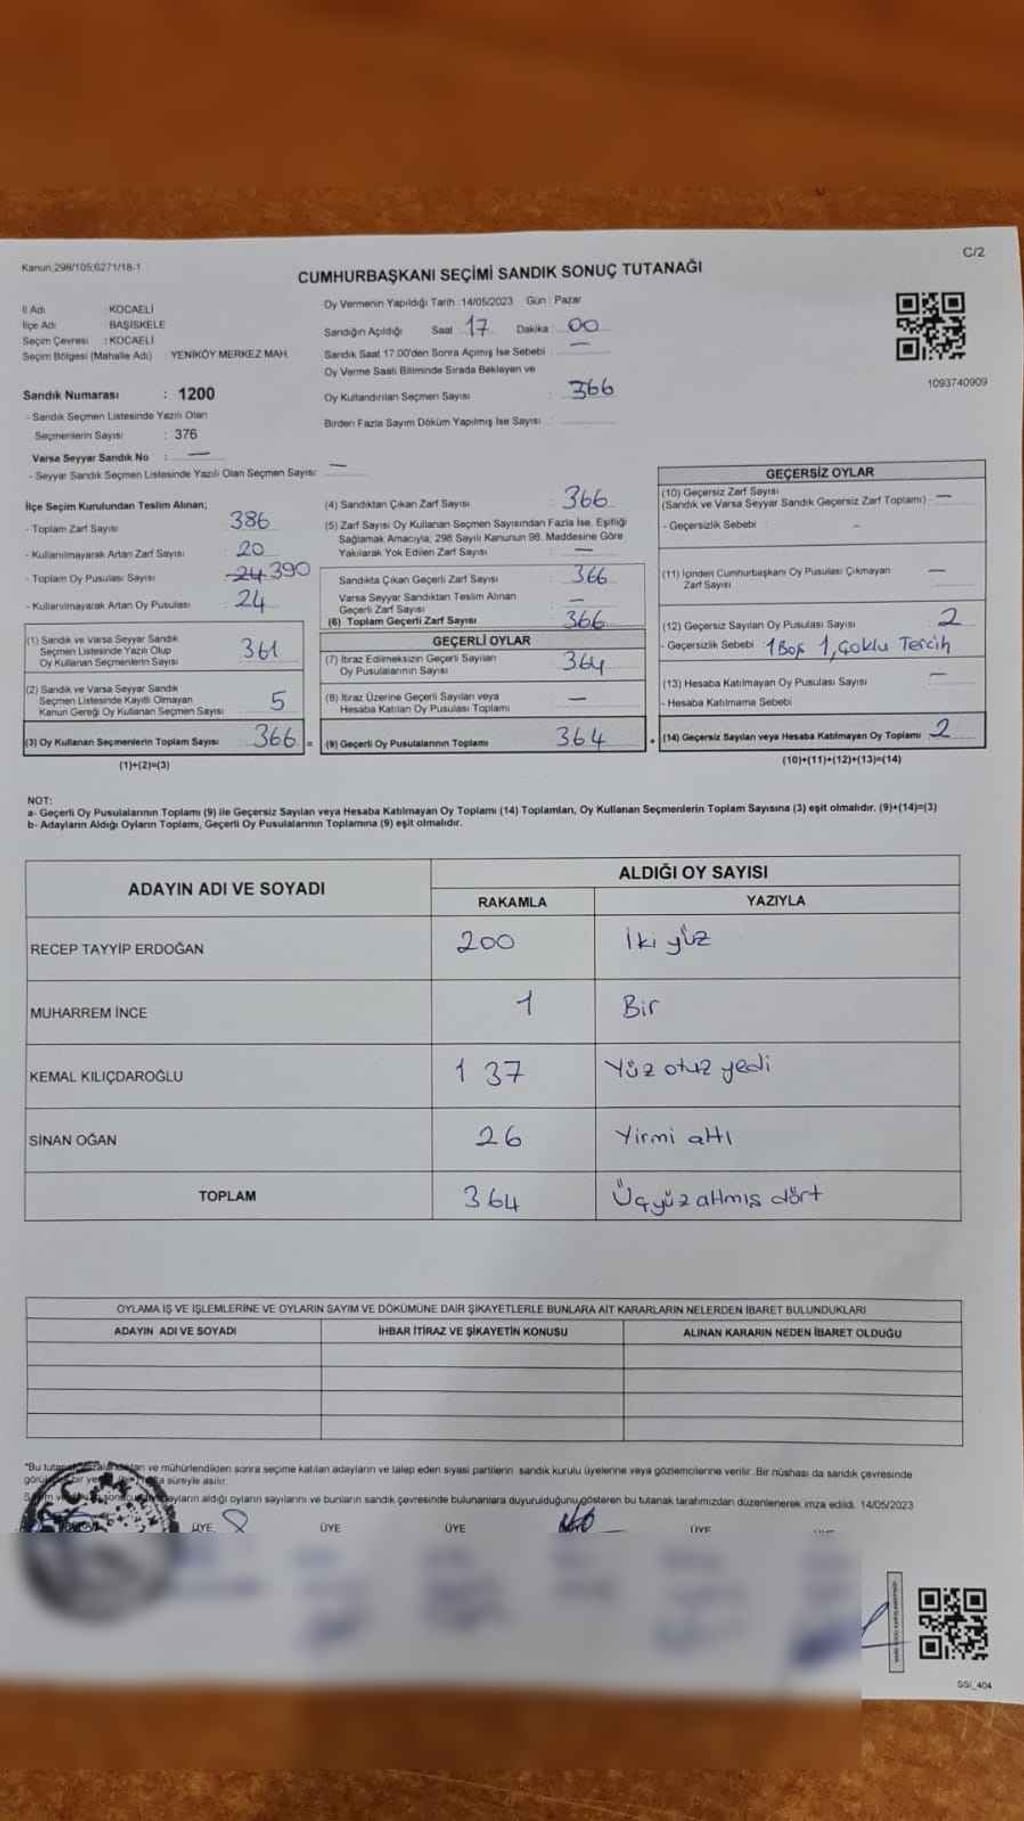 Kanun:298/105;6271/18-1
C/2
CUMHURBAŞKANI SEÇİMİ SANDIK SONUÇ TUTANAĞI
İl Adı : KOCAELİ
İlçe Adı : BAŞİSKELE
Seçim Çevresi : KOCAELİ
Seçim Bölgesi (Mahalle Adı) : YENİKÖY MERKEZ MAH.
Sandık Numarası : 1200
- Sandık Seçmen Listesinde Yazılı Olan
Seçmenlerin Sayısı : 376
Varsa Seyyar Sandık No : —
- Seyyar Sandık Seçmen Listesinde Yazılı Olan Seçmen Sayısı: —
Oy Vermenin Yapıldığı Tarih :14/05/2023 Gün : Pazar
Sandığın Açıldığı Saat 17 Dakika 00
Sandık Saat 17.00'den Sonra Açılmış İse Sebebi : —
Oy Verme Saati Bitiminde Sırada Bekleyen ve
Oy Kullandırılan Seçmen Sayısı : 366
Birden Fazla Sayım Döküm Yapılmış İse Sayısı :
1093740909
İlçe Seçim Kurulundan Teslim Alınan;
- Toplam Zarf Sayısı : 386
- Kullanılmayarak Artan Zarf Sayısı : 20
- Toplam Oy Pusulası Sayısı : 24 390
- Kullanılmayarak Artan Oy Pusulası : 24
(1) Sandık ve Varsa Seyyar Sandık
Seçmen Listesinde Yazılı Olup
Oy Kullanan Seçmenlerin Sayısı 361
(2) Sandık ve Varsa Seyyar Sandık
Seçmen Listesinde Kayıtlı Olmayan
Kanun Gereği Oy Kullanan Seçmen Sayısı 5
(3) Oy Kullanan Seçmenlerin Toplam Sayısı 366 =
(1)+(2)=(3)
(4) Sandıktan Çıkan Zarf Sayısı : 366
(5) Zarf Sayısı Oy Kullanan Seçmen Sayısından Fazla İse, Eşitliği
Sağlamak Amacıyla; 298 Sayılı Kanunun 98. Maddesine Göre
Yakılarak Yok Edilen Zarf Sayısı : —
Sandıkta Çıkan Geçerli Zarf Sayısı : 366
Varsa Seyyar Sandıktan Teslim Alınan
Geçerli Zarf Sayısı : —
(6) Toplam Geçerli Zarf Sayısı : 366
GEÇERLİ OYLAR
(7) İtiraz Edilmeksizin Geçerli Sayılan
Oy Pusulalarının Sayısı : 364
(8) İtiraz Üzerine Geçerli Sayılan veya
Hesaba Katılan Oy Pusulası Toplamı : —
(9) Geçerli Oy Pusulalarının Toplamı 364 +
GEÇERSİZ OYLAR
(10) Geçersiz Zarf Sayısı
(Sandık ve Varsa Seyyar Sandık Geçersiz Zarf Toplamı) : —
- Geçersizlik Sebebi : -
(11) İçinden Cumhurbaşkanı Oy Pusulası Çıkmayan
Zarf Sayısı : —
(12) Geçersiz Sayılan Oy Pusulası Sayısı : 2
- Geçersizlik Sebebi : 1 Boş 1, Çoklu Tercih
(13) Hesaba Katılmayan Oy Pusulası Sayısı : —
- Hesaba Katılmama Sebebi
(14) Geçersiz Sayılan veya Hesaba Katılmayan Oy Toplamı : 2
(10)+(11)+(12)+(13)=(14)
NOT:
a- Geçerli Oy Pusulalarının Toplamı (9) ile Geçersiz Sayılan veya Hesaba Katılmayan Oy Toplamı (14) Toplamları, Oy Kullanan Seçmenlerin Toplam Sayısına (3) eşit olmalıdır. (9)+(14)=(3)
b- Adayların Aldığı Oyların Toplamı, Geçerli Oy Pusulalarının Toplamına (9) eşit olmalıdır.
ADAYIN ADI VE SOYADI
ALDIĞI OY SAYISI
RAKAMLA YAZIYLA
RECEP TAYYİP ERDOĞAN 200 İki yüz
MUHARREM İNCE 1 Bir
KEMAL KILIÇDAROĞLU 137 Yüz otuz yedi
SİNAN OĞAN 26 Yirmi altı
TOPLAM 364 Üçyüz altmış dört
OYLAMA İŞ VE İŞLEMLERİNE VE OYLARIN SAYIM VE DÖKÜMÜNE DAİR ŞİKAYETLERLE BUNLARA AİT KARARLARIN NELERDEN İBARET BULUNDUKLARI
ADAYIN ADI VE SOYADI İHBAR İTİRAZ VE ŞİKAYETİN KONUSU ALINAN KARARIN NEDEN İBARET OLDUĞU
"Bu ve mühürlendikten sonra seçime katılan adayların ve talep eden siyasi partilerin sandık kurulu üyelerine veya gözlemcilerine verilir. Bir nüshası da sandık çevresinde
süreyle asılır.
aldığı oyların sayılarını ve bunların sandık çevresinde bulunanlara duyurulduğunu gösteren bu tutanak tarafımızdan düzenlenerek imza edildi. 14/05/2023
ÜYE ÜYE ÜYE ÜYE
SSI_404